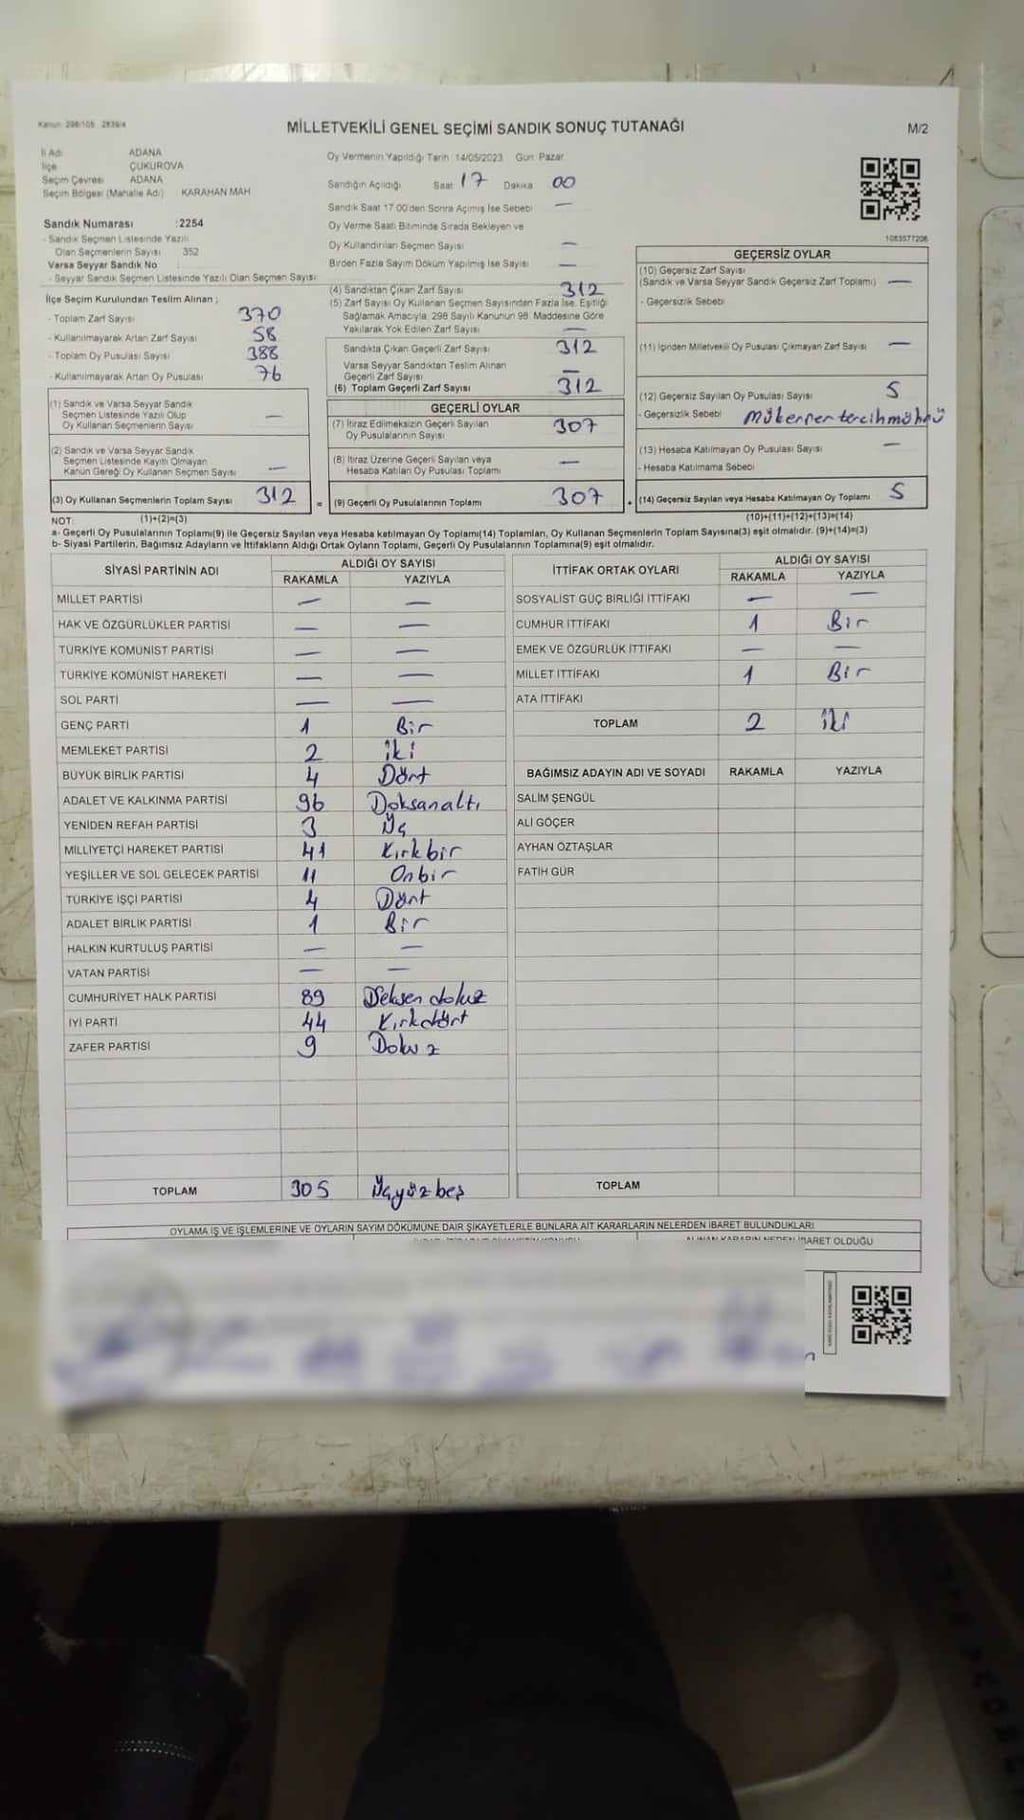 Kanun: 298/105 2839/4
MİLLETVEKİLİ GENEL SEÇİMİ SANDIK SONUÇ TUTANAĞI
M/2
İl Adı ADANA
İlçe ÇUKUROVA
Seçim Çevresi ADANA
Seçim Bölgesi (Mahalle Adı) KARAHAN MAH
Sandık Numarası : 2254
- Sandık Seçmen Listesinde Yazılı
Olan Seçmenlerin Sayısı 352
Varsa Seyyar Sandık No
- Seyyar Sandık Seçmen Listesinde Yazılı Olan Seçmen Sayısı:
Oy Vermenin Yapıldığı Tarih 14/05/2023 Gün: Pazar
Sandığın Açıldığı Saat 17 Dakika 00
Sandık Saat 17:00'den Sonra Açımış İse Sebebi —
Oy Verme Saati Bitiminde Sırada Bekleyen ve
Oy Kullandırılan Seçmen Sayısı —
Birden Fazla Sayım Döküm Yapılmış İse Sayısı —
1083577206
İlçe Seçim Kurulundan Teslim Alınan ;
- Toplam Zarf Sayısı 370
- Kullanılmayarak Artan Zarf Sayısı 58
- Toplam Oy Pusulası Sayısı 388
- Kullanılmayarak Artan Oy Pusulası 76
(1) Sandık ve Varsa Seyyar Sandık
Seçmen Listesinde Yazılı Olup
Oy Kullanan Seçmenlerin Sayısı —
(2) Sandık ve Varsa Seyyar Sandık
Seçmen Listesinde Kayıtlı Olmayan
Kanun Gereği Oy Kullanan Seçmen Sayısı —
(3) Oy Kullanan Seçmenlerin Toplam Sayısı 312
(1)+(2)=(3)
(4) Sandıktan Çıkan Zarf Sayısı 312
(5) Zarf Sayısı Oy Kullanan Seçmen Sayısından Fazla İse, Eşitliği
Sağlamak Amacıyla, 298 Sayılı Kanunun 98. Maddesine Göre
Yakılarak Yok Edilen Zarf Sayısı —
Sandıkta Çıkan Geçerli Zarf Sayısı 312
Varsa Seyyar Sandıktan Teslim Alınan
Geçerli Zarf Sayısı —
(6) Toplam Geçerli Zarf Sayısı 312
GEÇERLİ OYLAR
(7) İtiraz Edilmeksizin Geçerli Sayılan
Oy Pusulalarının Sayısı 307
(8) İtiraz Üzerine Geçerli Sayılan veya
Hesaba Katılan Oy Pusulası Toplamı —
= (9) Geçerli Oy Pusulalarının Toplamı 307
GEÇERSİZ OYLAR
(10) Geçersiz Zarf Sayısı
(Sandık ve Varsa Seyyar Sandık Geçersiz Zarf Toplamı) —
- Geçersizlik Sebebi
(11) İçinden Milletvekili Oy Pusulası Çıkmayan Zarf Sayısı —
(12) Geçersiz Sayılan Oy Pusulası Sayısı 5
- Geçersizlik Sebebi mükerrer tercih mührü
(13) Hesaba Katılmayan Oy Pusulası Sayısı —
- Hesaba Katılmama Sebebi
+ (14) Geçersiz Sayılan veya Hesaba Katılmayan Oy Toplamı 5
(10)+(11)+(12)+(13)=(14)
NOT:
a- Geçerli Oy Pusulalarının Toplamı(9) ile Geçersiz Sayılan veya Hesaba katılmayan Oy Toplamı(14) Toplamları, Oy Kullanan Seçmenlerin Toplam Sayısına(3) eşit olmalıdır. (9)+(14)=(3)
b- Siyasi Partilerin, Bağımsız Adayların ve İttifakların Aldığı Ortak Oyların Toplamı, Geçerli Oy Pusulalarının Toplamına(9) eşit olmalıdır.
SİYASİ PARTİNİN ADI ALDIĞI OY SAYISI
RAKAMLA YAZIYLA
MİLLET PARTİSİ — —
HAK VE ÖZGÜRLÜKLER PARTİSİ — —
TÜRKİYE KOMÜNİST PARTİSİ — —
TÜRKİYE KOMÜNİST HAREKETİ — —
SOL PARTİ — —
GENÇ PARTİ 1 Bir
MEMLEKET PARTİSİ 2 iki
BÜYÜK BİRLİK PARTİSİ 4 Dört
ADALET VE KALKINMA PARTİSİ 96 Doksanaltı
YENİDEN REFAH PARTİSİ 3 Üç
MİLLİYETÇİ HAREKET PARTİSİ 41 Kırkbir
YEŞİLLER VE SOL GELECEK PARTİSİ 11 Onbir
TÜRKİYE İŞÇİ PARTİSİ 4 Dört
ADALET BİRLİK PARTİSİ 1 Bir
HALKIN KURTULUŞ PARTİSİ — —
VATAN PARTİSİ — —
CUMHURİYET HALK PARTİSİ 89 Seksen dokuz
İYİ PARTİ 44 Kırkdört
ZAFER PARTİSİ 9 Dokuz
TOPLAM 305 Üçyüzbeş
İTTİFAK ORTAK OYLARI ALDIĞI OY SAYISI
RAKAMLA YAZIYLA
SOSYALİST GÜÇ BİRLİĞİ İTTİFAKI — —
CUMHUR İTTİFAKI 1 Bir
EMEK VE ÖZGÜRLÜK İTTİFAKI — —
MİLLET İTTİFAKI 1 Bir
ATA İTTİFAKI
TOPLAM 2 iki
BAĞIMSIZ ADAYIN ADI VE SOYADI RAKAMLA YAZIYLA
SALİM ŞENGÜL
ALİ GÖÇER
AYHAN ÖZTAŞLAR
FATİH GÜR
TOPLAM
OYLAMA İŞ VE İŞLEMLERİNE VE OYLARIN SAYIM DÖKÜMÜNE DAİR ŞİKAYETLERLE BUNLARA AİT KARARLARIN NELERDEN İBARET BULUNDUKLARI
ALINAN KARARIN NEDEN İBARET OLDUĞU